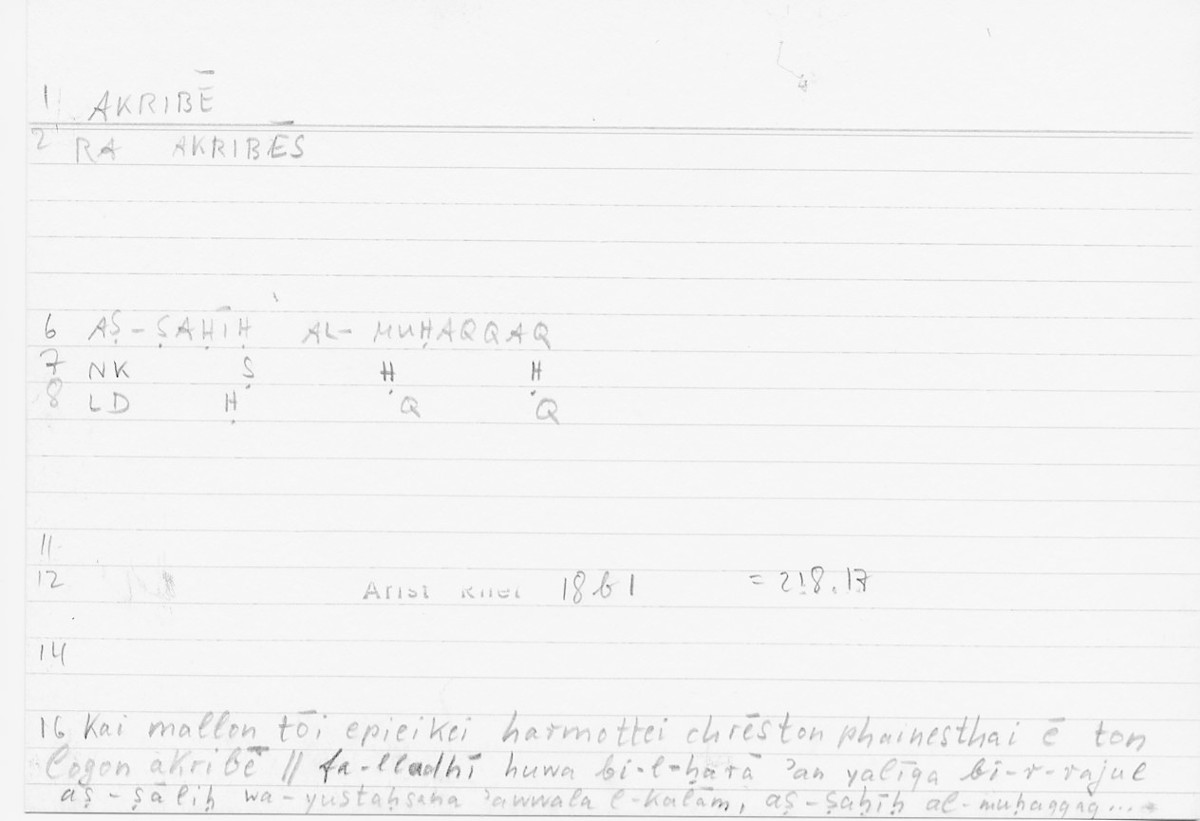 1 AKRIBĒ
2 RA AKRIBĒS
6 AṢ-ṢAḤĪḤ AL-MUḤAQQAQ
7 NK Ṣ Ḥ Ḥ
8 LD Ḥ Q Q
11
12 Arist Rhet 18b1 = 218.17
14
16 Kai mallon tōi epieikei harmottei chrēston phainesthai ē ton
logon akribē // fa-lladhī huwa bi-l-ḥarā ʾan yalīqa bi-r-rajul
aṣ-ṣāliḥ wa-yustaḥsana ʾawwala l-kalām, aṣ-ṣaḥīḥ al-muḥaqqaq...